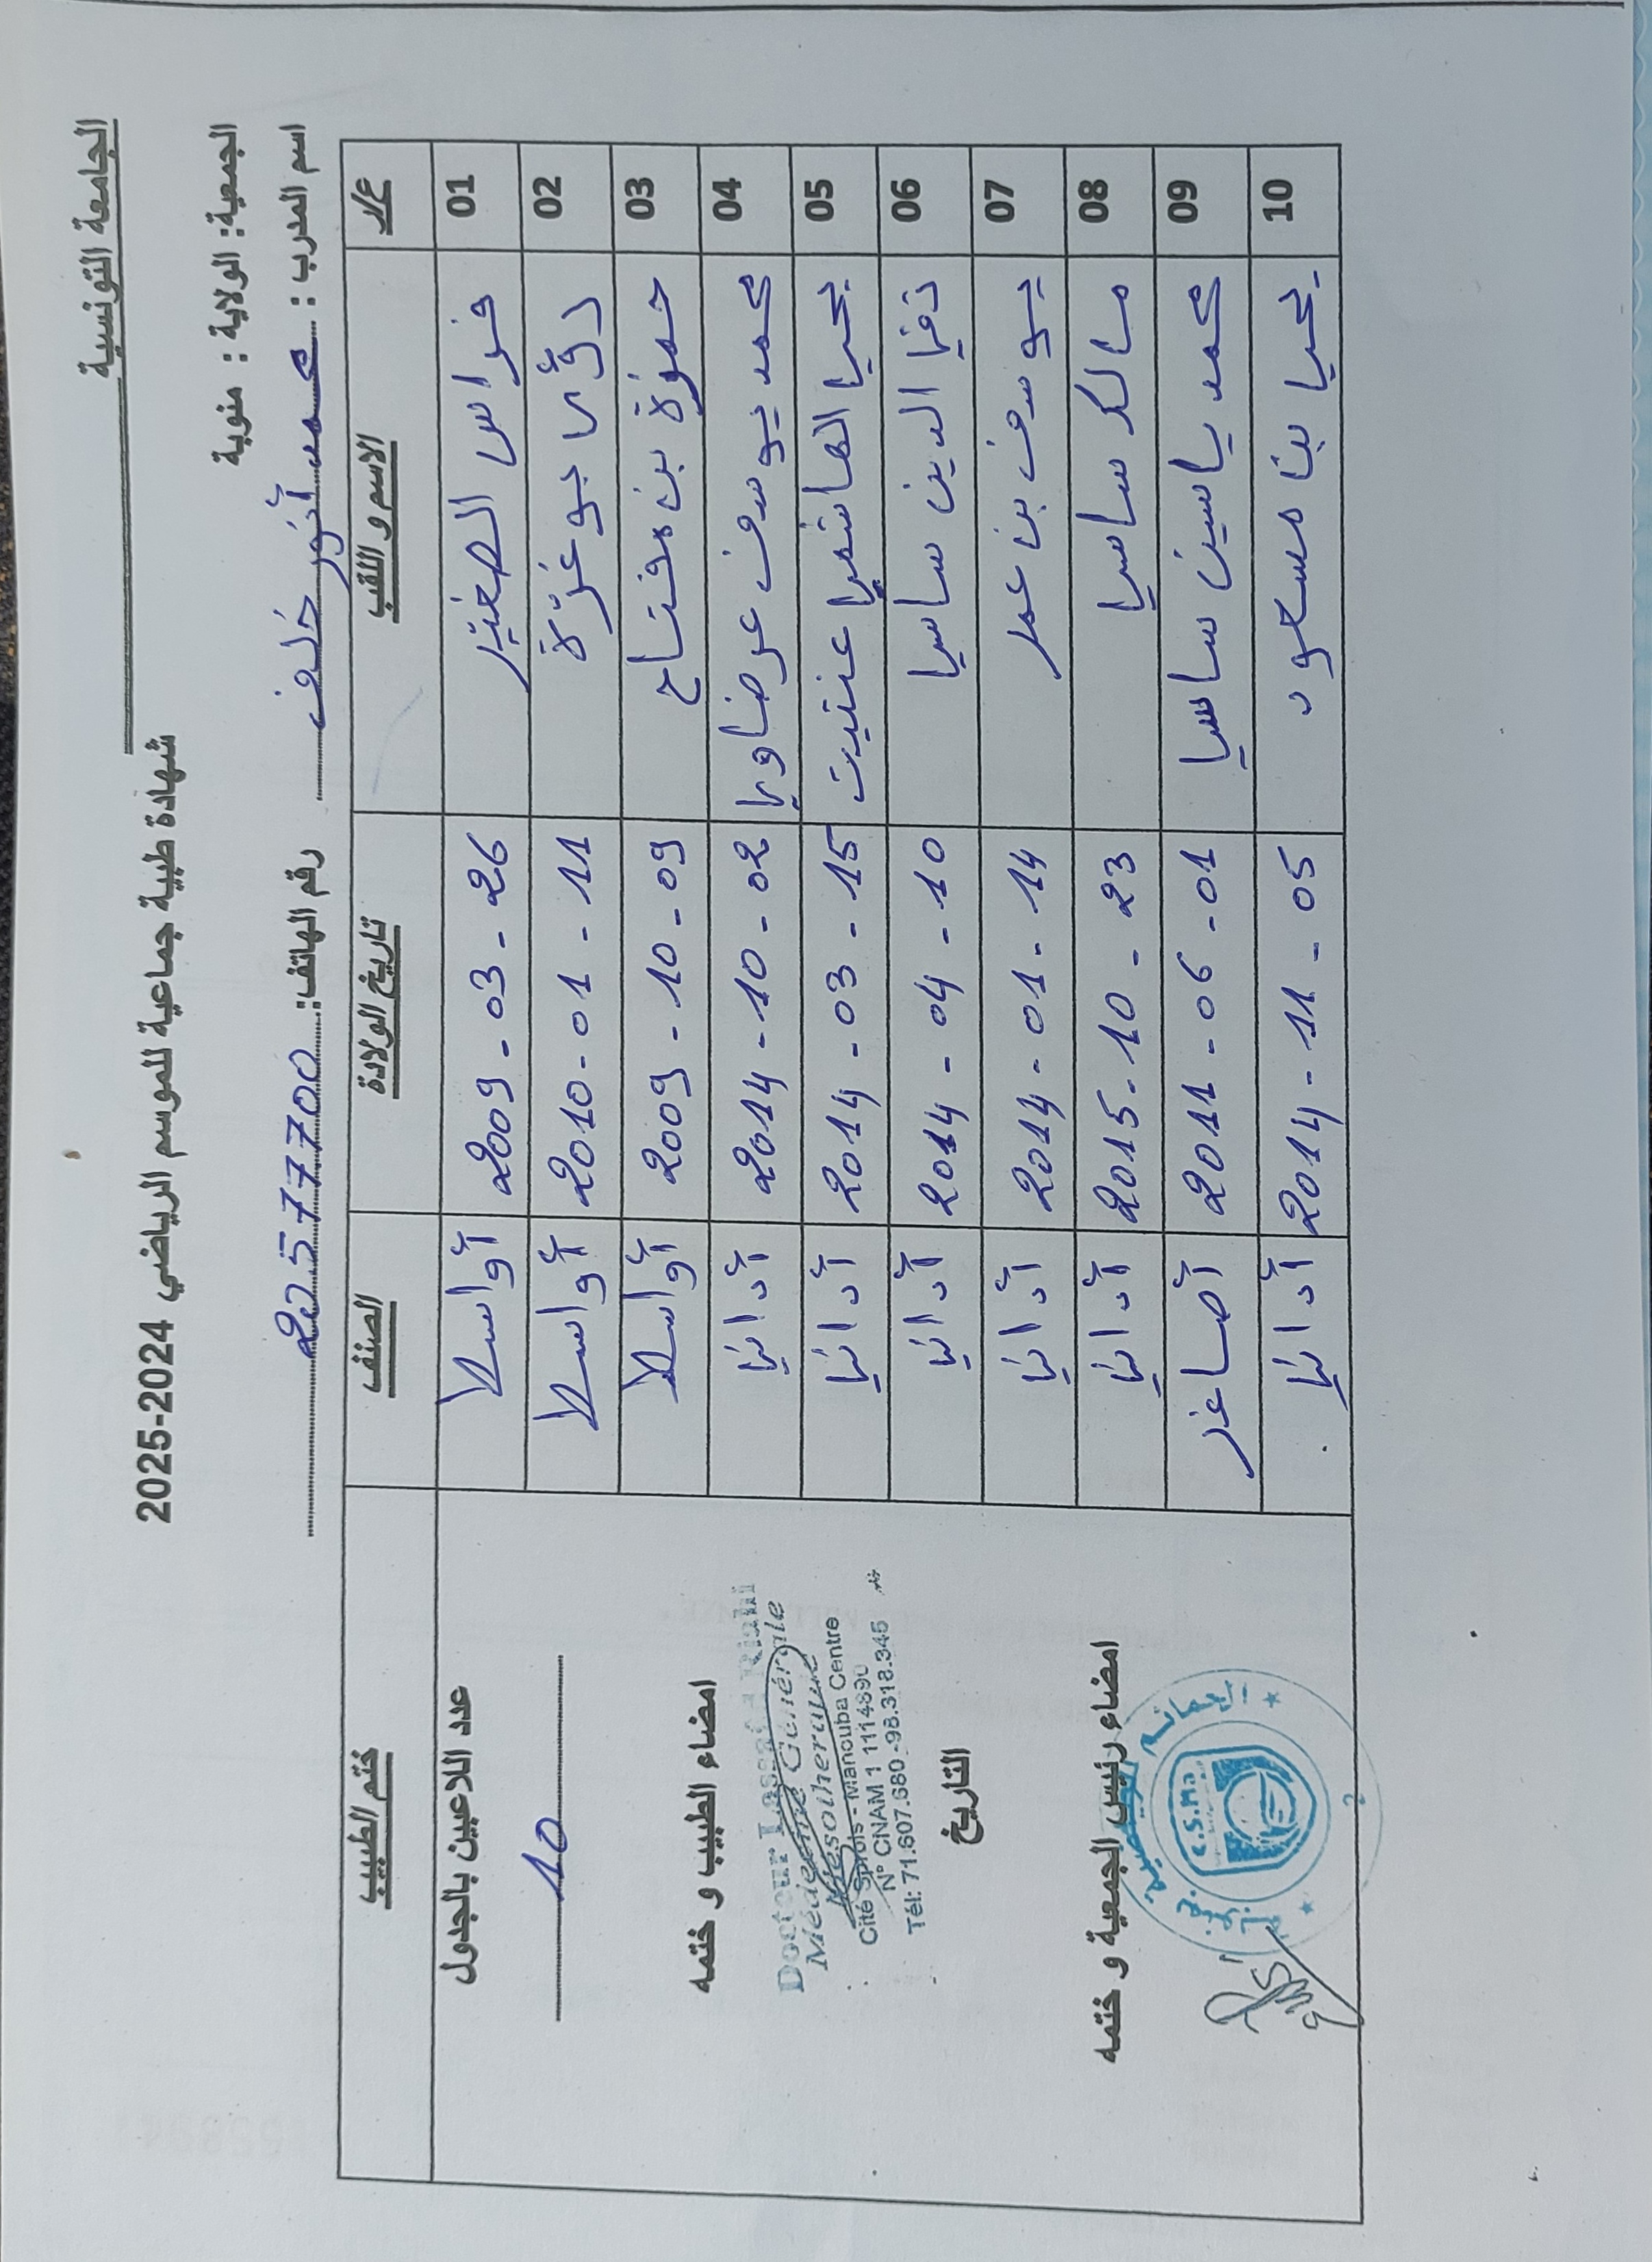 الجامعة التونسية
شهادة طبية جماعية للموسم الرياضي 2024-2025
الجمعية: الولاية : منوبة
اسم المدرب : محمد أنور خلف رقم الهاتف: 20577700
ع/ر الاسم و اللقب تاريخ الولادة الصنف ختم الطبيب
01 فراس الصغير 2009-03-26 أواسط
02 لؤي بوغزة 2010-01-11 أواسط
03 حمزة بن مفتاح 2009-10-09 أواسط
04 محمد يوسف عرضاوي 2014-10-02 أداني
05 يحيى الهاشمي عنتيت 2014-03-15 أداني
06 تقي الدين ساسي 2014-04-10 أداني
07 يوسف بن عمر 2014-01-14 أداني
08 مالك ساسي 2015-10-23 أداني
09 محمد ياسين ساسي 2011-06-01 أصاغر
10 يحيى بن مسعود 2014-11-05 أداني
عدد اللاعبين بالجدول
10
امضاء الطبيب و ختمه
Docteur Lassaad Riahi
Médecine Générale
Mésothérapie
Cité Sprols - Manouba Centre
N° CNAM 1 1114890
Tél: 71.607.680 -98.318.345
التاريخ
امضاء رئيس الجمعية و ختمه
C.S.Ma